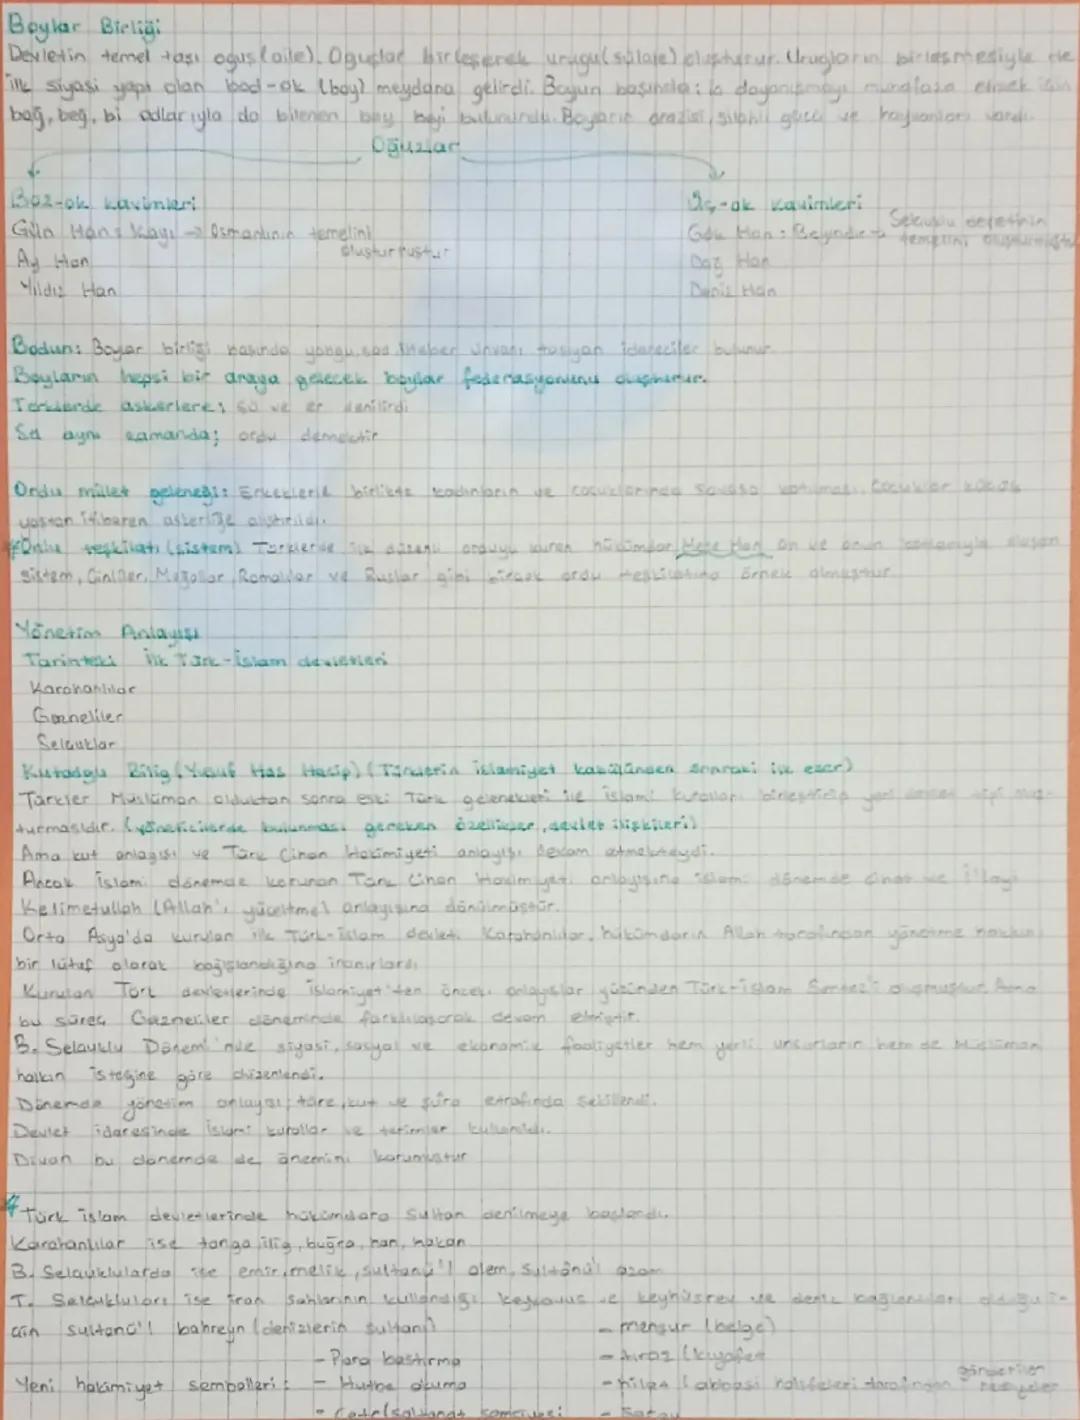 Boylar Birliği
Devletin temel taşı oguş (aile). Oguşlar birleşerek urugu (sülale) oluşturur. Urugların birleşmesiyle de
ilk siyasi yapı olan bod-ok (boy) meydana gelirdi. Boyun başında; iç dayanışmayı muhafaza etmek için
bağ, beg, bi adlarıyla da bilenen boy beyi bulunurdu. Boyların arazisi, silahlı gücü ve hayvanları vardı.
Oğuzlar
Boz-ok kavimleri
Gün Han: Kayı → Osmanlının temelini
oluşturmuştur
Ay Han
Yıldız Han
Üç-ok kavimleri
Gök Han: Bayındır → Selçuklu devletinin
temelini oluşturmuştur
Dağ Han
Deniz Han
Bodun: Boylar birliği başında yabgu, şad, ilteber ünvanı taşıyan idareciler bulunur.
Boyların hepsi bir araya gelecek boylar federasyonunu oluşturur.
Türklerde askerlere; sü ve er denilirdi
Sü aynı zamanda; ordu demektir
Ordu millet geleneği: Erkeklerle birlikte kadınların ve çocuklarında savaşa katılması. Çocuklar küçük
yaştan itibaren askerliğe alıştırıldı.
Ordu teşkilatı (sistem) Türklerde ilk düzenli orduyu kuran hükümdar Mete Han on ve onun katlarıyla oluşan
sistem, Çinliler, Moğollar, Romalılar ve Ruslar gibi birçok ordu teşkilatına örnek olmuştur
Yönetim Anlayışı
Tarihteki ilk Türk-İslam devletleri
Karahanlılar
Gazneliler
Selçuklar
Kutadgu Bilig (Yusuf Has Hacip) (Türklerin islamiyet kabülünden sonraki ilk eser)
Türkler Müslüman olduktan sonra eski Türk gelenekleri ile islami kuralları birleştirip yeni devlet tipi oluş-
turmasıdır. (yöneticilerde bulunması gereken özellikler, devlet ilişkileri)
Ama kut anlayışı ve Türk Cihan Hakimiyeti anlayışı devam etmekteydi.
Ancak İslami dönemde korunan Türk Cihan Hakimiyeti anlayışına islami dönemde cihat ve i'layı
Kelimetullah (Allah'ı yüceltme) anlayışına dönülmüştür.
Orta Asya'da kurulan ilk Türk-İslam devleti Karahanlılar, hükümdarın Allah tarafından yönetme hakkını
bir lütuf olarak bağışlandığına inanırlardı
Kurulan Türk devletlerinde islamiyet'ten önceki anlayışlar yüzünden Türk-islam Sentez'i oluşmuştur. Ama
bu süreç Gazneliler döneminde farklılaşarak devam etmiştir.
B. Selçuklu Dönemi'nde siyasi, sosyal ve ekonomik faaliyetler hem yerli unsurların hem de Müslüman
halkın isteğine göre düzenlendi.
Dönemde yönetim anlayışı; töre, kut ve şûra etrafında şekillendi.
Devlet idaresinde İslami kurallar ve terimler kullanıldı.
Divan bu dönemde de önemini korumuştur
Türk islam devletlerinde hükümdara Sultan denilmeye başlandı.
Karahanlılar ise tonga, ilig, buğra, han, hakan
B. Selçuklularda ise emir, melik, sultanü'l alem, Sultânü'l azam
T. Selçukluları ise iran şahlarının kullandığı keykavus ve keyhüsrev ve deniz bağlantıları olduğu i-
çin sultanü'l bahreyn (denizlerin sultanı)
Yeni hakimiyet sembolleri:
- Para bastırma
- Hutbe okuma
- Çetr (saltanat şemsiyesi
- menşur (belge)
- tıraz (kıyafet
- hilat (abbasi halifeleri tarafından gönderilen hediyeler